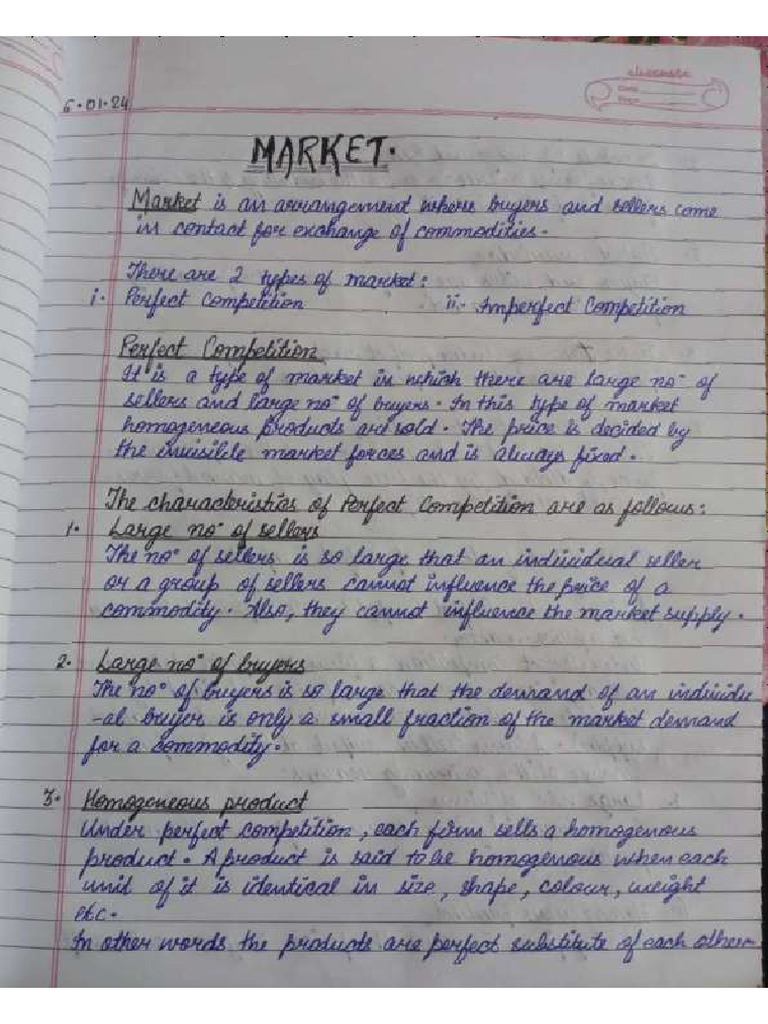 classmate
Date
Page
6.01.24
MARKET.
Market is an arrangement where buyers and sellers come
in contact for exchange of commodities.
There are 2 types of market:
i. Perfect competition ii. Imperfect Competition
Perfect Competition
It is a type of market in which there are large no° of
sellers and large no° of buyers. In this type of market
homogeneous products are sold. The price is decided by
the invisible market forces and is always fixed.
The characteristics of Perfect Competition are as follows:
1. Large no° of sellers
The no° of sellers is so large that an individual seller
or a group of sellers cannot influence the price of a
commodity. Also, they cannot influence the market supply.
2. Large no° of buyers
The no° of buyers is so large that the demand of an individu
-al buyer is only a small fraction of the market demand
for a commodity.
3. Homogeneous product
Under perfect competition, each firm sells a homogenous
product. A product is said to be homogenous when each
unit of it is identical in size, shape, colour, weight
etc.
In other words the products are perfect substitute of each other